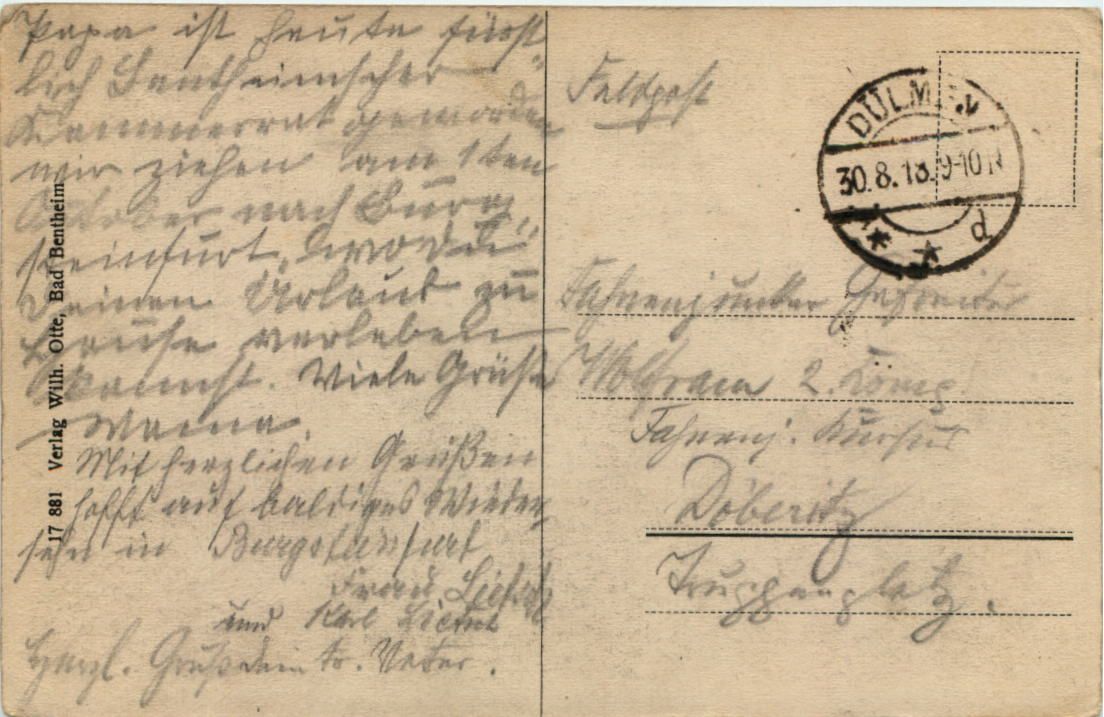 Papa ist heute fürst-
lich Bentheimscher
Kammerrat geworden
wir ziehen am 1ten
Oktober nach Burg-
steinfurt, wo Du
Deinen Urlaub zu
Hause verleben
kannst. Viele Grüße
Mama.
Mit herzlichen Grüßen
hofft auf baldiges Wieder-
sehn in Burgsteinfurt
Frau
und Karl
Herzl. Gruß Dein tr. Vater.
17 881 Verlag Wilh. Otte, Bad Bentheim
Feldpost
DÜLMEN
30.8.18. 9-10 N
* * * d
Fahnenjunker Gefreiter
Wolfram 2. Komp.
Fahnenj. Kursus
Döberitz
Truppenplatz.